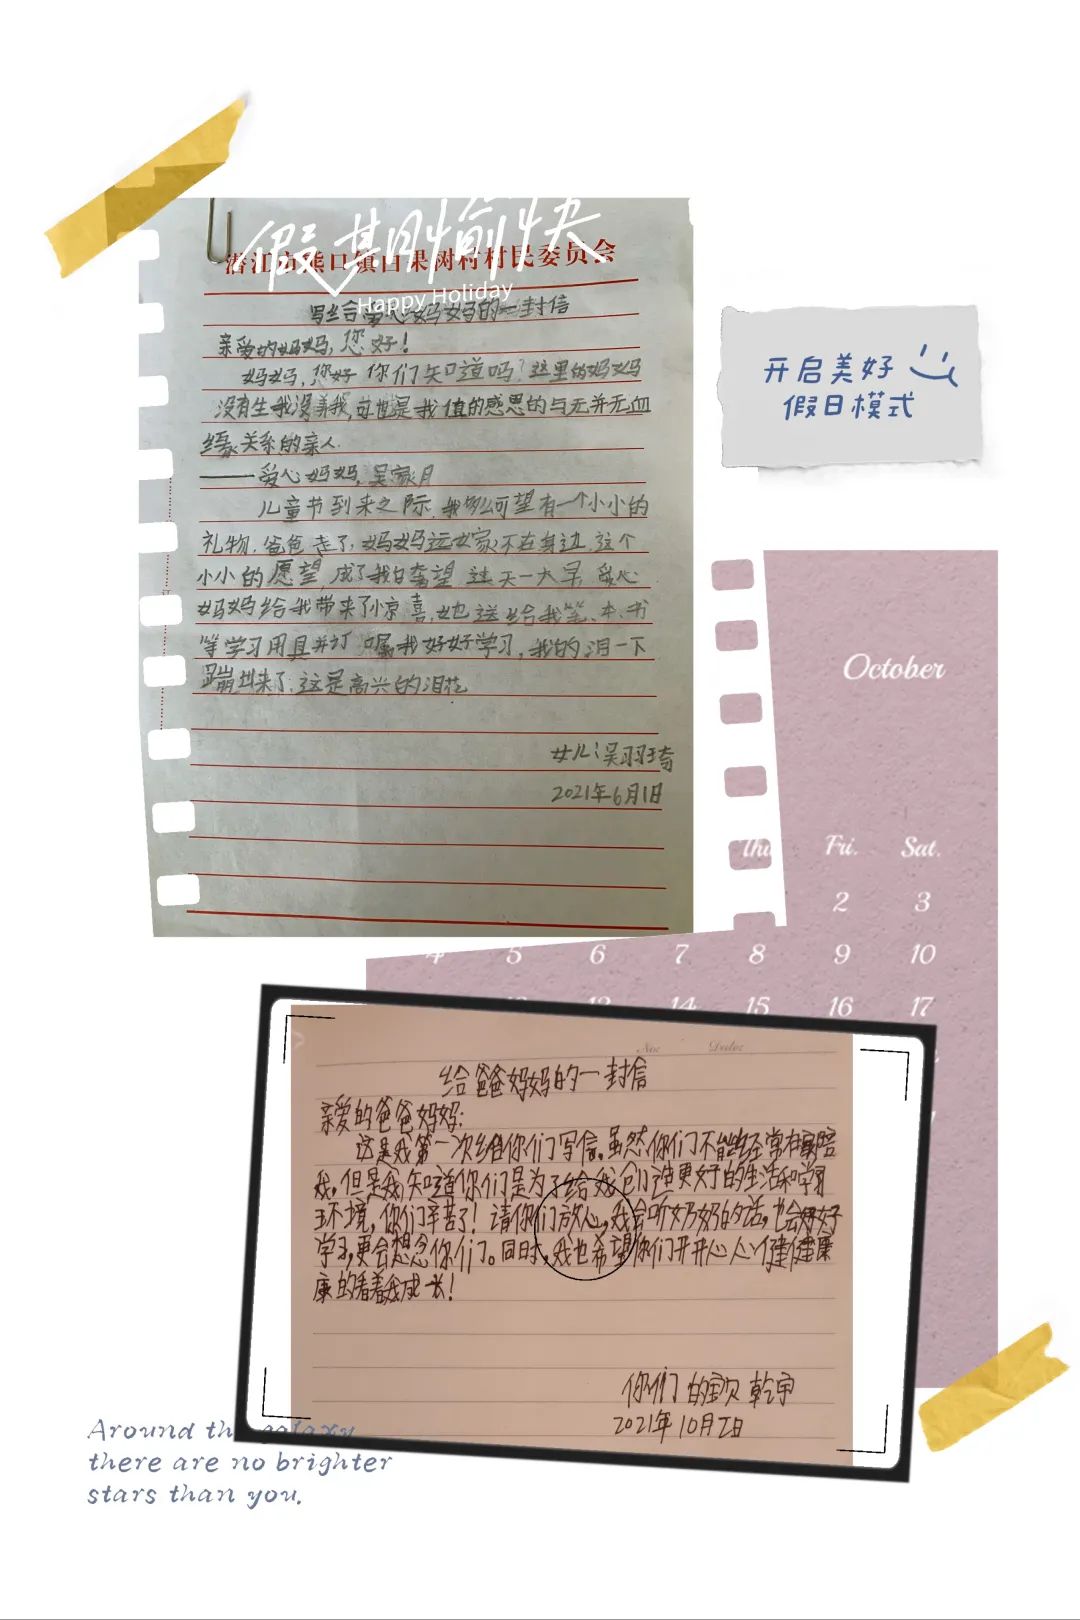 假期愉快
潜江市熊口镇白果树村村民委员会
Happy Holiday
写给爱心妈妈的一封信
亲爱的妈妈，您好！
妈妈，您好 你们知道吗？这里的妈妈
没有生我没养我，可她是我值的感恩的与无并无血
缘关系的亲人.
——爱心妈妈，吴家月
儿童节到来之际，我多么可望有一个小小的
礼物，爸爸走了，妈妈远女家不在身边，这个
小小的愿望，成了我的奢望 这天一大早，爱心
妈妈给我带来了小京喜，她送给我笔、本、书
等学习用具并叮嘱我好好学习，我的泪一下
蹦出来了，这是高兴的泪花
女儿：吴羽琦
2021年6月1日
开启美好
假日模式
October
Thu Fri. Sat.
2 3
4 5 6 7 8 9 10
12 13 14 15 16 17
给爸爸妈妈的一封信
亲爱的爸爸妈妈：
这是我第一次给你们写信。虽然你们不能经常在家陪
我，但是我知道你们是为了给我创造更好的生活和学习
环境，你们辛苦了！请你们放心，我会听奶奶的话，也会好好
学习，更会想念你们。同时，我也希望你们开开心心健健康
康的看着我成长！
你们的宝贝 乾宇
2021年10月2日
Around the galaxy
there are no brighter
stars than you.